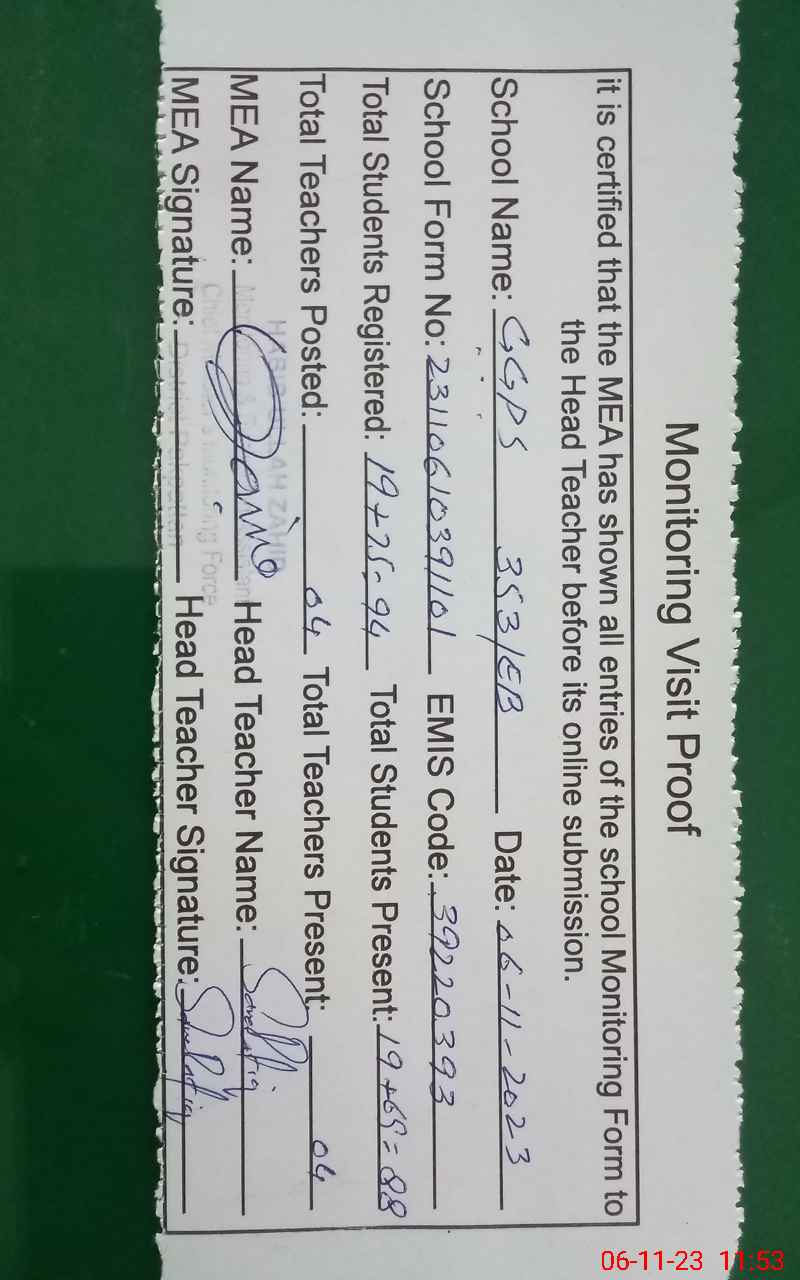 Monitoring Visit Proof
it is certified that the MEA has shown all entries of the school Monitoring Form to
the Head Teacher before its online submission.
School Name: GGPS 353/EB Date: 06-11-2023
School Form No: 23110610391101 EMIS Code: 39220393
Total Students Registered: 19+75=94 Total Students Present: 19+69=88
Total Teachers Posted: 04 Total Teachers Present: 04
MEA Name: Head Teacher Name:
MEA Signature: Head Teacher Signature:
ZAHIR
Force
06-11-23 11:53